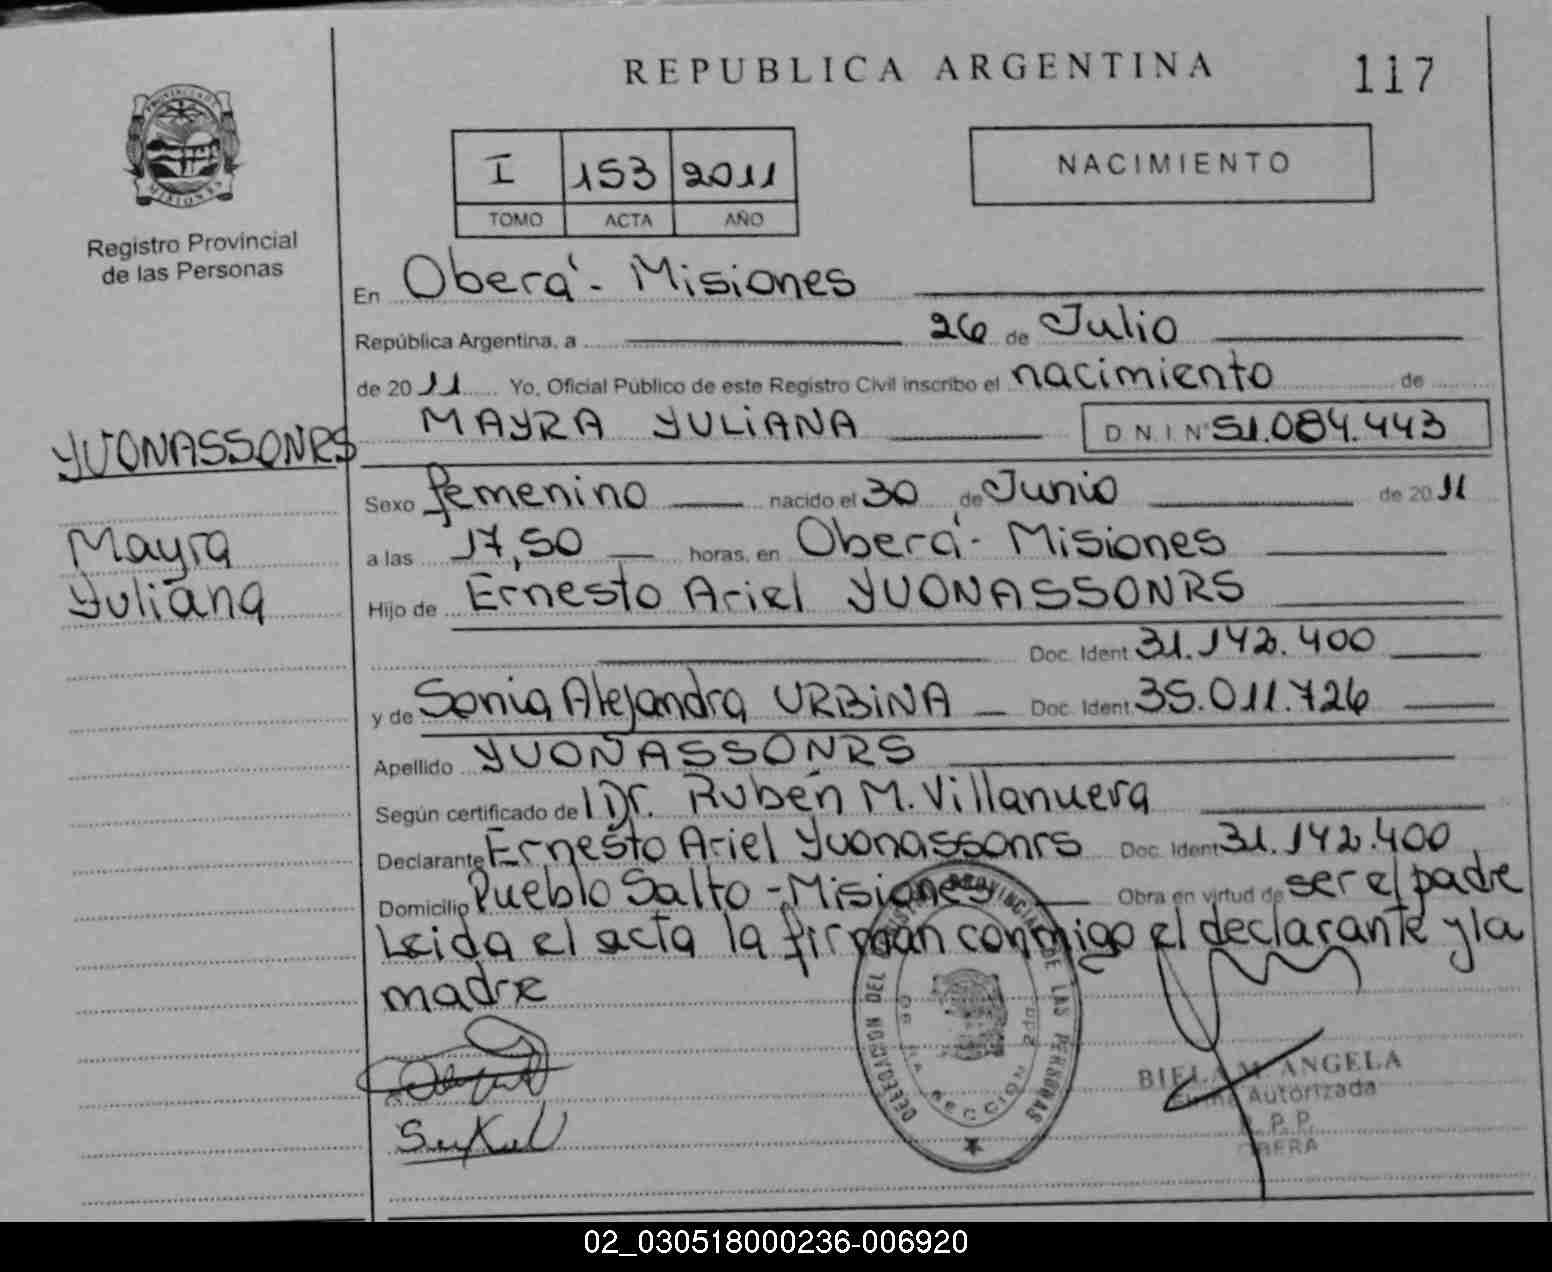 REPUBLICA ARGENTINA
117
PROVINCIA DE
MISIONES
Registro Provincial
de las Personas
I 153 2011
TOMO ACTA AÑO
NACIMIENTO
En Oberá - Misiones
República Argentina, a 26 de Julio
de 2011 Yo, Oficial Público de este Registro Civil inscribo el nacimiento de
MAYRA YULIANA D N I Nº 51.084.443
YUONASSONRS
Mayra
Yuliana
Sexo femenino nacido el 30 de Junio de 2011
a las 17,50 horas, en Oberá - Misiones
Hijo de Ernesto Ariel YUONASSONRS
Doc. Ident 31.142.400
y de Sonia Alejandra URBINA Doc. Ident. 35.011.726
Apellido YUONASSONRS
Según certificado de Dr. Rubén M. Villanueva
Declarante Ernesto Ariel Yuonassonrs Doc. Ident 31.142.400
Domicilio Pueblo Salto - Misiones Obra en virtud de ser el padre
Leida el acta la firman conmigo el declarante y la
madre
DELEGACION DEL REGISTRO PROVINCIAL DE LAS PERSONAS
SECCION 2da
OBERA
BIELA M. ANGELA
Firma Autorizada
R. P. P.
OBERA
02_030518000236-006920